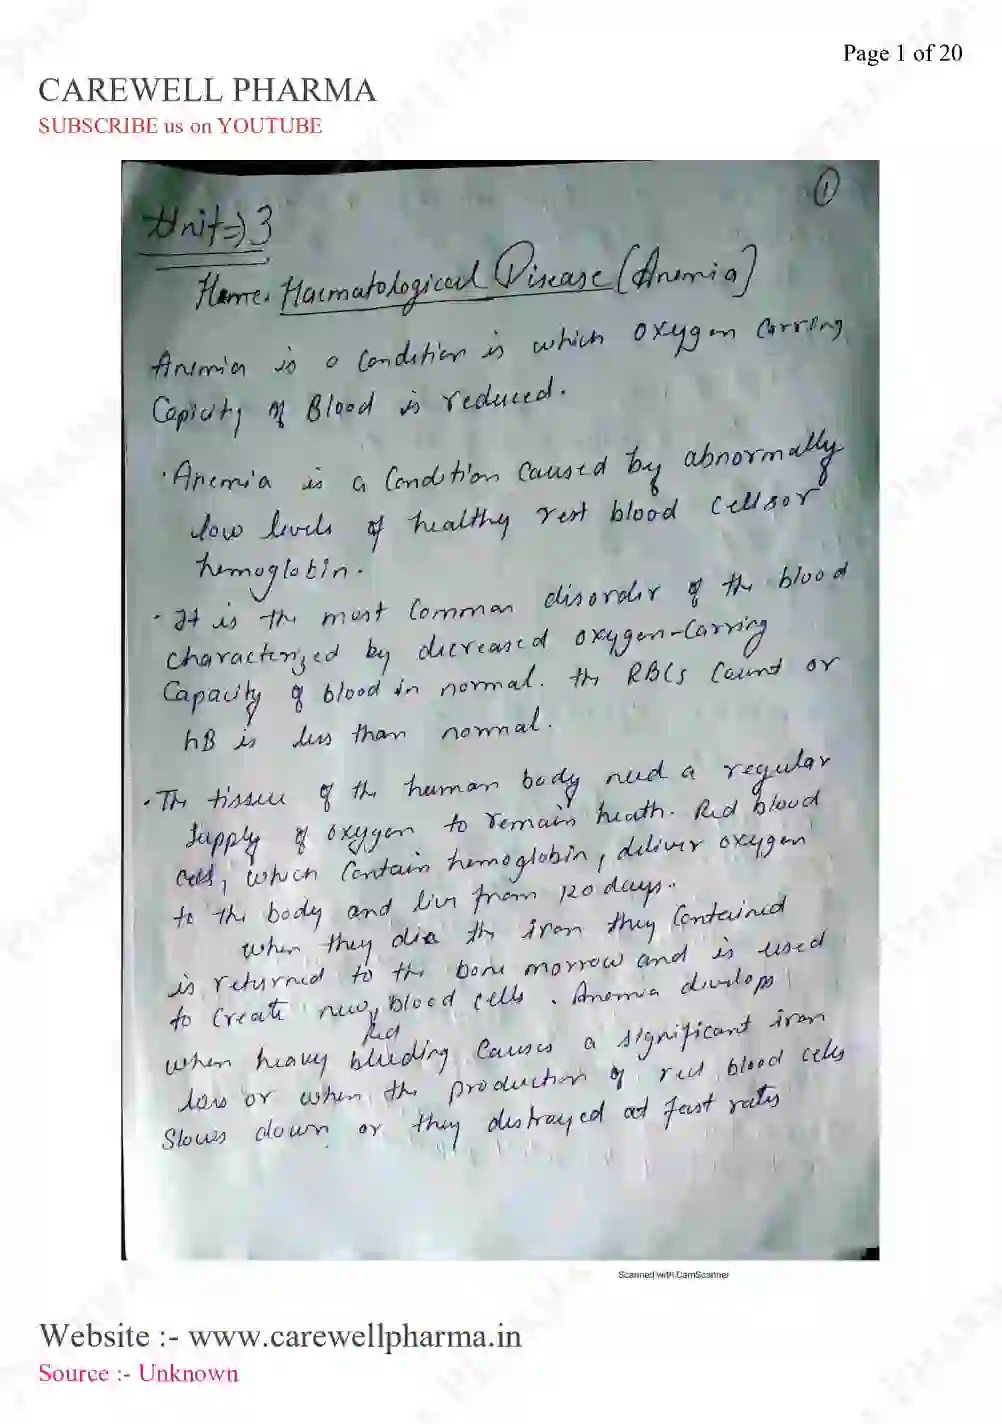 Page 1 of 20
CAREWELL PHARMA
SUBSCRIBE us on YOUTUBE
1
Unit=>3
Heme. Haematological Disease (Anemia)
Anemia is a condition is which oxygen carring
Capicity of Blood is reduced.
· Anemia is a condition caused by abnormally
low levels of healthy rest blood cells or
hemoglobin.
· It is the most common disorder of the blood
characterized by decreased oxygen-carring
Capacity of blood in normal. the RBCs count or
hB is less than normal.
· The tissue of the human body need a regular
supply of oxygen to remain heath. Red blood
cell, which contain hemoglobin, deliver oxygen
to the body and live from 120 days.
when they die the iron they contained
is returned to the bone morrow and is used
to create new Red blood cells. Anemia develops
when heavy bleeding causes a significant iron
loss or when the production of red blood cells
slows down or they distrayed at fast rates
Scanned with CamScanner
Website :- www.carewellpharma.in
Source :- Unknown